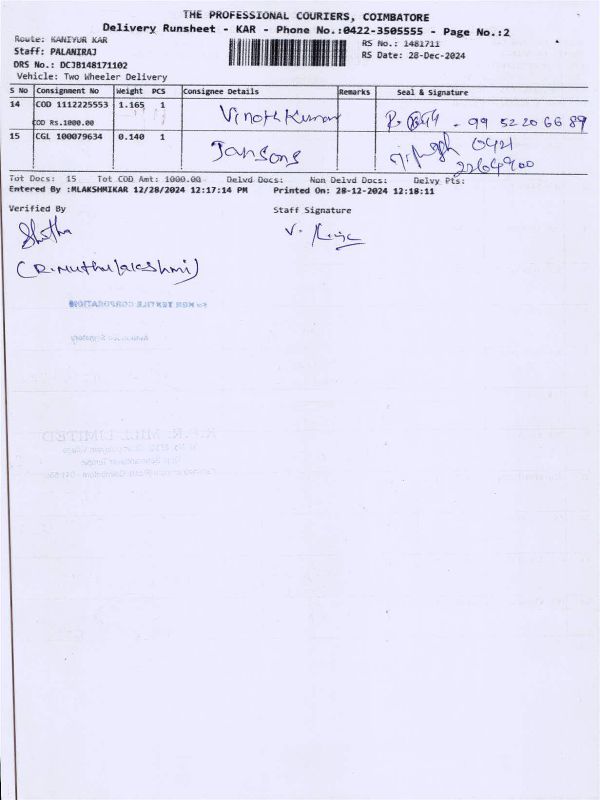 THE PROFESSIONAL COURIERS, COIMBATORE
Delivery Runsheet - KAR - Phone No.:0422-3505555 - Page No.:2
Route: KANIYUR KAR
RS No.: 1481711
Staff: PALANIRAJ
RS Date: 28-Dec-2024
DRS No.: DCJB148171102
Vehicle: Two Wheeler Delivery
S No Consignment No Weight PCS Consignee Details Remarks Seal & Signature
14 COD 1112225553 1.165 1 Vinoth Kumar 99 52 20 66 89
COD Rs.1000.00
15 CGL 100079634 0.140 1 Jansons 0421
2264900
Tot Docs: 15 Tot COD Amt: 1000.00 Delvd Docs: Non Delvd Docs: Delvy Pts:
Entered By :MLAKSHMIKAR 12/28/2024 12:17:14 PM Printed On: 28-12-2024 12:18:11
Verified By Staff Signature
(R.Muthulakshmi)
For NGR TEXTILE CORPORATION
Authorised Signatory
K.P.R. MILL LIMITED